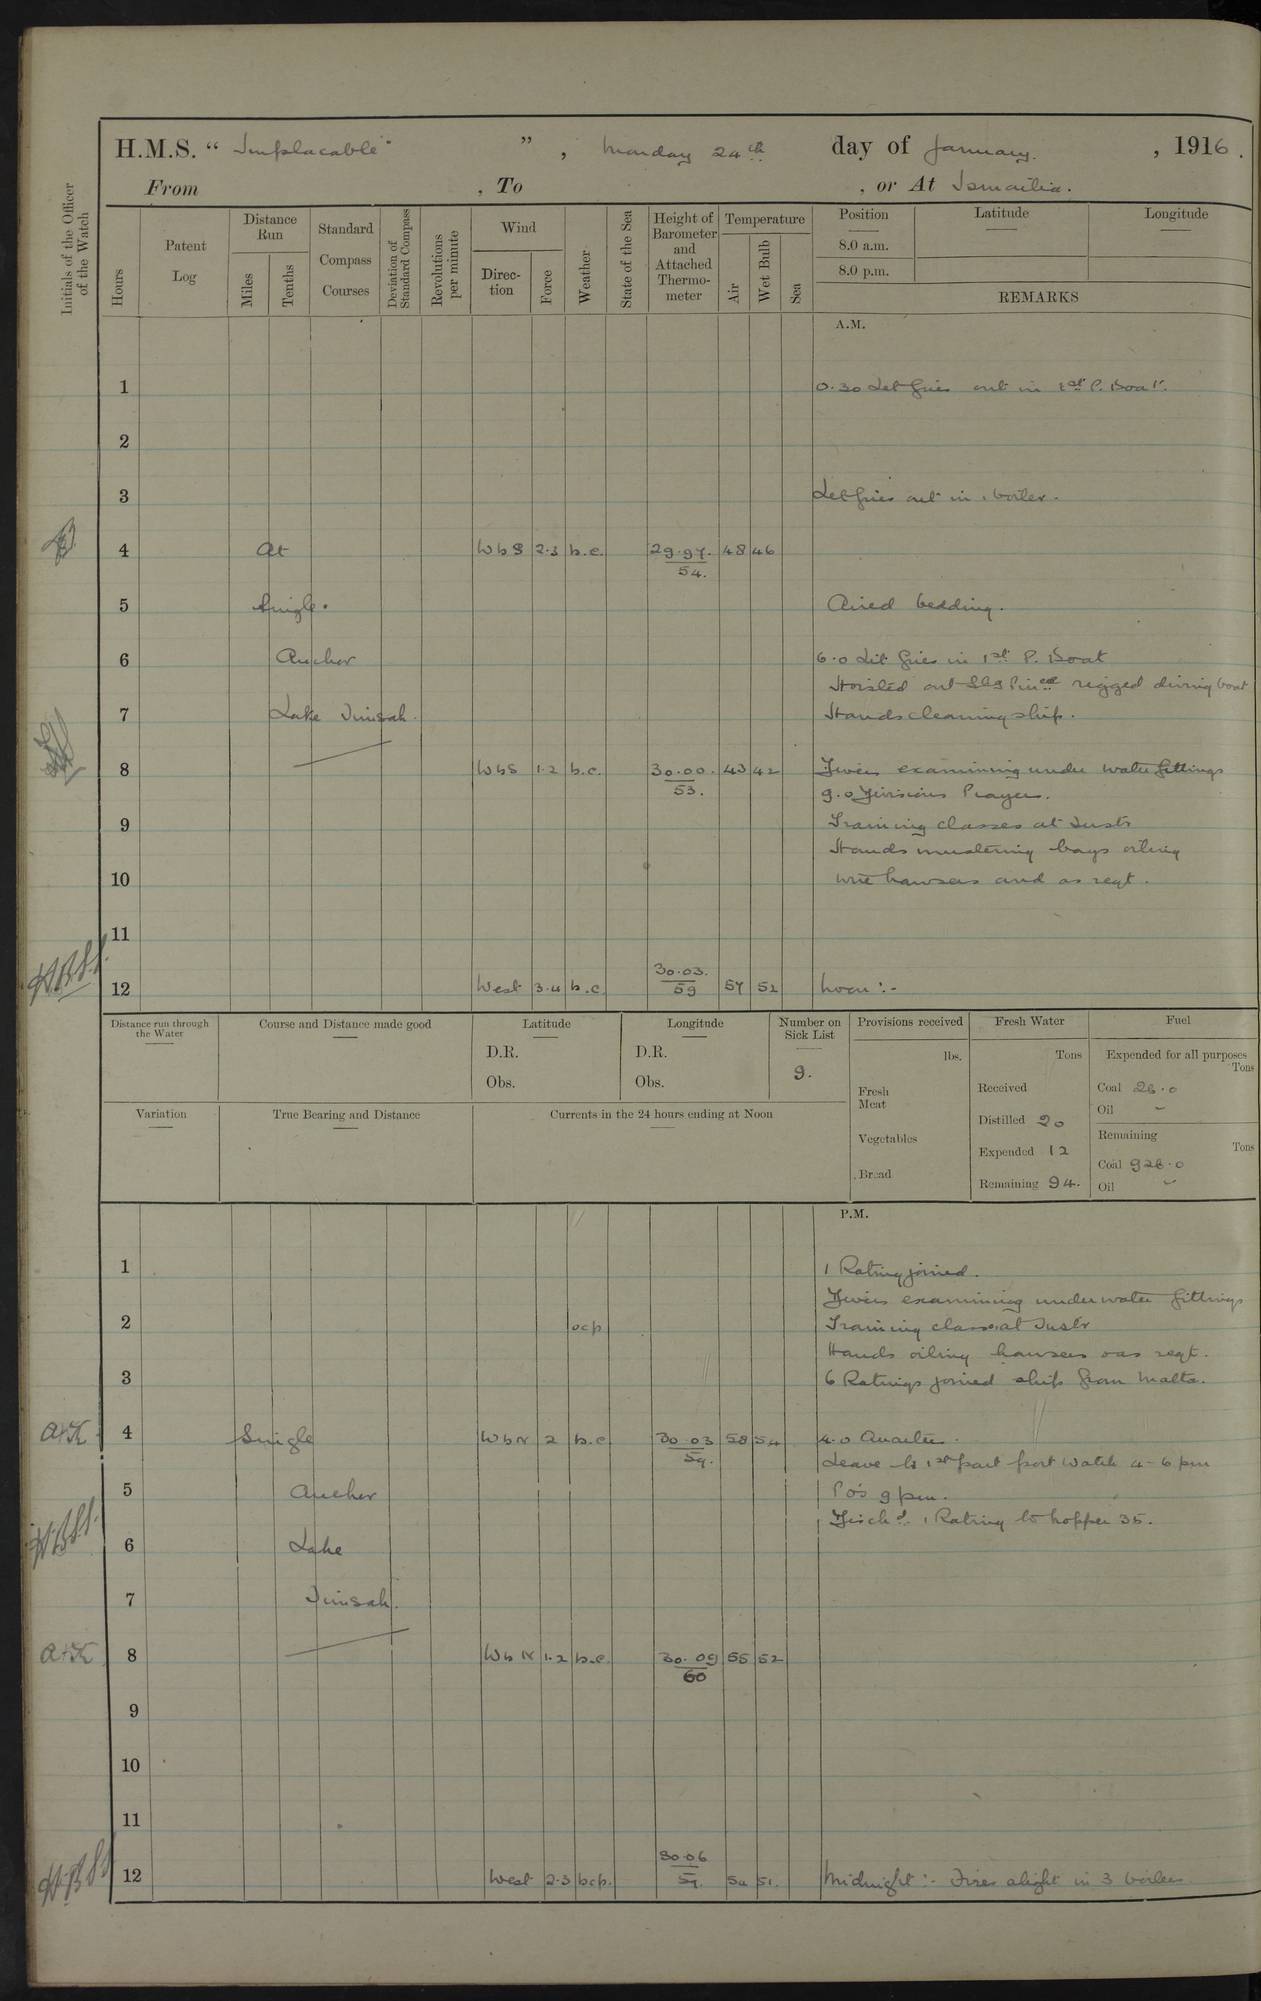 H.M.S. “ Implacable ” , Monday 24th day of January. , 1916.
From , To , or At Ismailia.
Initials of the Officer of the Watch
Hours
Patent Log
Distance Run
Miles
Tenths
Standard Compass Courses
Deviation of Standard Compass
Revolutions per minute
Wind
Direction
Force
Weather
State of the Sea
Height of Barometer and Attached Thermometer
Temperature
Air
Wet Bulb
Sea
Position
8.0 a.m.
8.0 p.m.
Latitude
Longitude
REMARKS
A.M.
1 0.30 Let fires out in 1st P. Boat.
2
3 Let fires out in 1 boiler.
4 At WbS 2.3 b.c. 29.97. 48 46
54.
5 Single. Aired bedding.
6 Anchor 6.0 Lit fires in 1st P. Boat
Hoisted out rigged diving boat
7 Lake Timsah. Hands cleaning ship.
8 WbS 1.2 b.c. 30.00. 43 42 Divers examining under water fittings
53. 9.0 Divisions Prayers.
9 Training classes at Instr
Hands mustering bags oiling
10 wire hawsers and as reqt.
11
12 West 3.4 b.c. 30.03. 57 52 Noon :-
59
Distance run through the Water
Course and Distance made good
Latitude
D.R.
Obs.
Longitude
D.R.
Obs.
Number on Sick List
9.
Provisions received
lbs.
Fresh Meat
Vegetables
Bread
Fresh Water
Tons
Received
Distilled 20
Expended 12
Remaining 94.
Fuel
Expended for all purposes
Tons
Coal 26.0
Oil -
Remaining
Tons
Coal 926.0
Oil -
Variation
True Bearing and Distance
Currents in the 24 hours ending at Noon
P.M.
1 1 Rating joined.
Divers examining under water fittings
2 ocp Training class at Instr
Hands oiling hawsers as reqt.
3 6 Ratings joined ship from Malta.
4 Single WbN 2 b.c 30.03 58 54 4.0 Quarters.
59. Leave to 1st part port watch 4-6 pm
5 Anchor POs 9 pm.
Disch'd. 1 Rating to hopper 35.
6 Lake
7 Timsah.
8 WbN 1.2 b.c. 30.09 55 52
60
9
10
11
12 West 2.3 bcp. 30.06 54 51. Midnight :- Fires alight in 3 boilers
59.